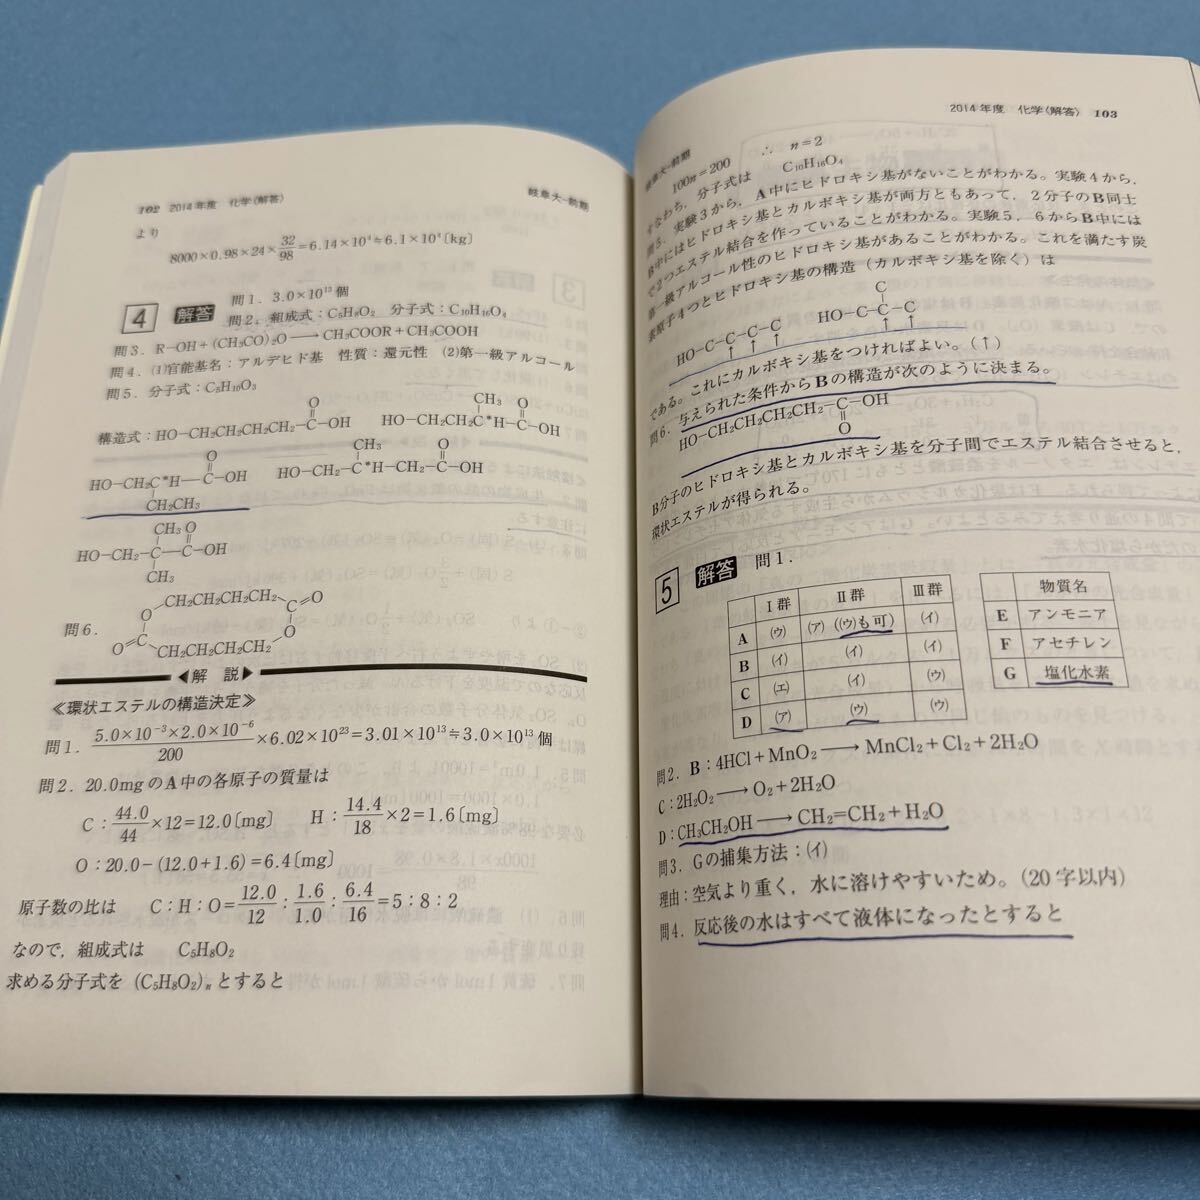 102 2014年度 化学〈解答〉 岐阜大-前期
より
8000×0.98×24×32/98=6.14×10⁴≒6.1×10⁴〔kg〕
4 解答 問1．3.0×10¹³個
問2．組成式：C₅H₈O₂ 分子式：C₁₀H₁₆O₄
問3．R-OH+(CH₃CO)₂O⟶CH₃COOR+CH₃COOH
問4．(1)官能基名：アルデヒド基 性質：還元性 (2)第一級アルコール
問5．分子式：C₅H₁₀O₃
構造式：HO-CH₂CH₂CH₂CH₂-C(=O)-OH HO-CH₂CH₂C*H(CH₃)-C(=O)-OH
HO-CH₂C*H(CH₂CH₃)-C(=O)-OH HO-CH₂-C*H(CH₃)-CH₂C(=O)-OH
HO-CH₂-C(CH₃)(CH₃)-C(=O)-OH
問6．
O CH₂CH₂CH₂CH₂ C=O
O=C CH₂CH₂CH₂CH₂ O
◀解 説▶
≪環状エステルの構造決定≫
問1．5.0×10⁻³×2.0×10⁻⁶/200×6.02×10²³=3.01×10¹³≒3.0×10¹³個
問2．20.0mgのA中の各原子の質量は
C：44.0/44×12=12.0〔mg〕 H：14.4/18×2=1.6〔mg〕
O：20.0-(12.0+1.6)=6.4〔mg〕
原子数の比は C：H：O=12.0/12：1.6/1.0：6.4/16=5：8：2
なので，組成式は C₅H₈O₂
求める分子式を (C₅H₈O₂)ₙとすると
2014年度 化学〈解答〉 103
岐阜大-前期
100n=200 ∴ n=2
すなわち，分子式は C₁₀H₁₆O₄
問5．実験3から，A中にヒドロキシ基がないことがわかる。実験4から，
B中にはヒドロキシ基とカルボキシ基が両方ともあって，2分子のB同士
で2つエステル結合を作っていることがわかる。実験5，6からB中には
第一級アルコール性のヒドロキシ基があることがわかる。これを満たす炭
素原子4つとヒドロキシ基の構造（カルボキシ基を除く）は
HO-C-C-C-C HO-C-C(C)-C
↑ ↑ ↑ ↑ ↑
である。これにカルボキシ基をつければよい。（↑）
問6．与えられた条件からBの構造が次のように決まる。
HO-CH₂CH₂CH₂CH₂-C(=O)-OH
B分子のヒドロキシ基とカルボキシ基を分子間でエステル結合させると，
環状エステルが得られる。
5 解答 問1．
Ⅰ群 Ⅱ群 Ⅲ群 物質名
A (ウ) (ア)((ウ)も可) (イ) E アンモニア
B (イ) (イ) (イ) F アセチレン
C (エ) (イ) (ウ) G 塩化水素
D (ア) (ウ) (ウ)
問2．B：4HCl+MnO₂⟶MnCl₂+Cl₂+2H₂O
C：2H₂O₂⟶O₂+2H₂O
D：CH₃CH₂OH⟶CH₂=CH₂+H₂O
問3．Gの捕集方法：(イ)
理由：空気より重く，水に溶けやすいため。（20字以内）
問4．反応後の水はすべて液体になったとすると